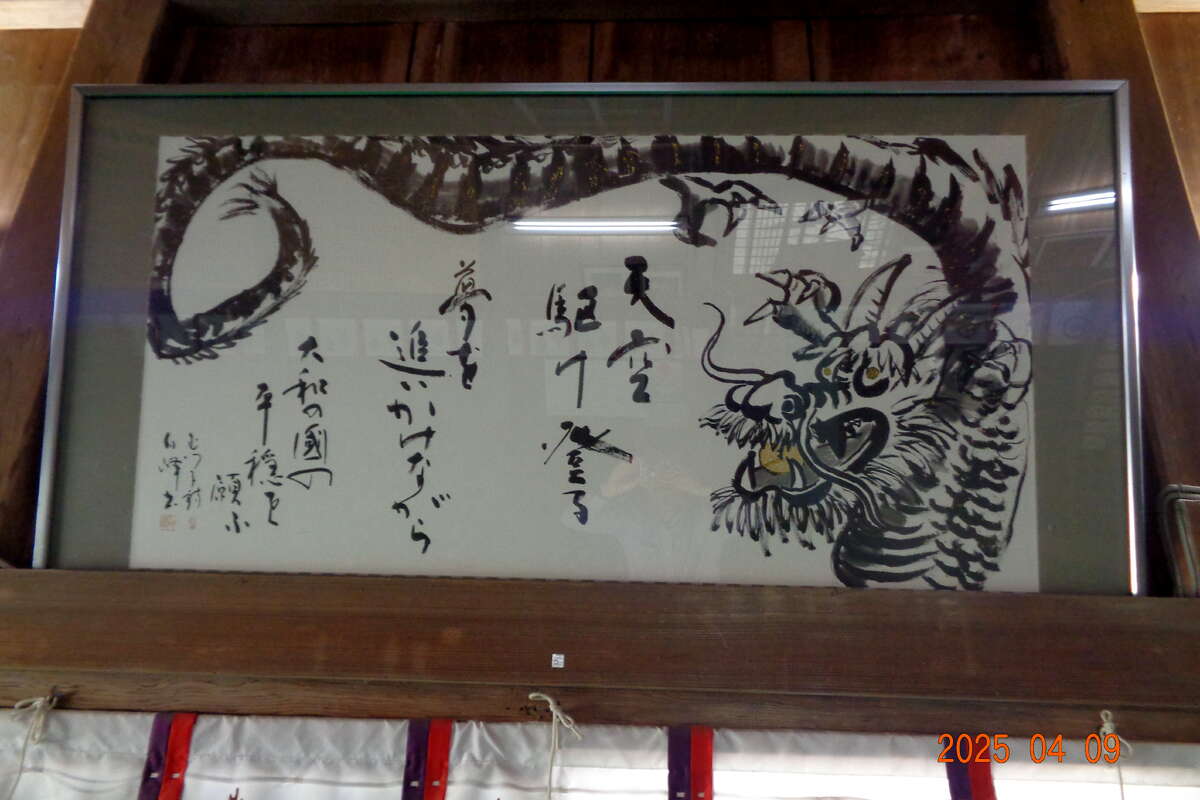 天空
駆け登る
夢を
追いかけながら
大和の國の
平穏を
願ふ
2025 04 09